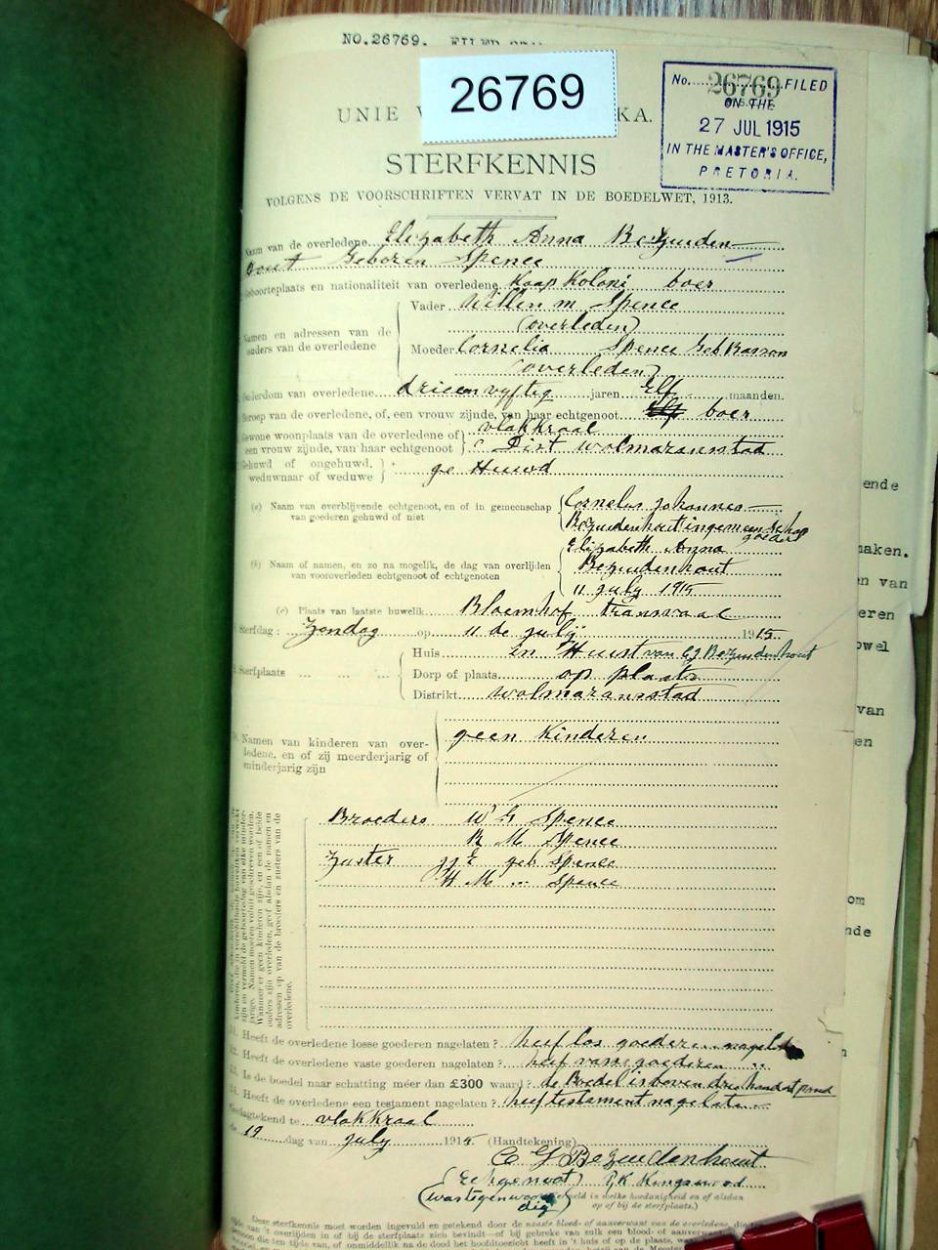 NO.26769. FILED
26769
No. 26769 FILED
ON THE
27 JUL 1915
IN THE MASTER'S OFFICE,
PRETORIA.
UNIE KA.
STERFKENNIS
VOLGENS DE VOORSCHRIFTEN VERVAT IN DE BOEDELWET, 1913.
Naam van de overledene Elizabeth Anna Bezuiden
hout Geboren Spence
Geboorteplaats en nationaliteit van overledene Kaap Koloni boer
Namen en adressen van de
ouders van de overledene
Vader Willem M Spence
(overleden)
Moeder Cornelia Spence Geb Basson
(overleden)
Ouderdom van overledene drieen vyftig jaren Elf maanden.
Beroep van de overledene, of, een vrouw zijnde, van haar echtgenoot boer
Gewone woonplaats van de overledene of
een vrouw zijnde, van haar echtgenoot
vlakkraal
Dist wolmaransstad
Gehuwd of ongehuwd,
weduwnaar of weduwe
ge Huwd
(a) Naam van overblijvende echtgenoot, en of in gemeenschap
van goederen gehuwd of niet
Cornelus Johannes
Bezuidenhout in gemeenschap
goedert
(b) Naam of namen, en zo na mogelik, de dag van overlijden
van vooroverleden echtgenoot of echtgenoten
Elizabeth Anna
Bezuidenhout
11 July 1915
(c) Plaats van laatste huwelik Bloemhof transvaal
Sterfdag: Zondag op 11 de july 1915
Sterfplaats
Huis in Huist van CJ Bezuidenhout
Dorp of plaats op plaats
Distrikt wolmaransstad
Namen van kinderen van over-
ledene, en of zij meerderjarig of
minderjarig zijn
geen Kinderen
Broeders W G Spence
R M Spence
Zuster JJE geb Spence
H M " Spence
Heeft de overledene losse goederen nagelaten? heef los goederen nagelate
Heeft de overledene vaste goederen nagelaten? heef vaste goederen "
Is de boedel naar schatting méér dan £300 waard? de Boedel is boven drie hondert pond
Heeft de overledene een testament nagelaten? heef testament nagelate
Gedagtekend te vlakkraal
de 19 dag van july 1915 (Handtekening)
C J Bezuidenhout
(Echgenoot)
(was tegenwoor
dig)
op of bij de sterfplaats.)
Deze sterfkennis moet worden ingevuld en getekend door de naaste bloed- of aanverwant van de overledene, die
ende
maken.
en van
eren
owel
van
en
om
nde